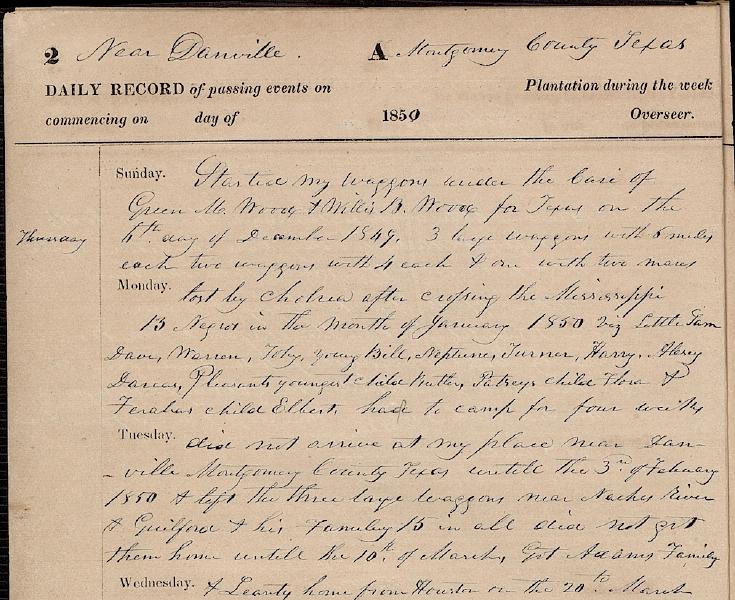 2 Near Danville. A Montgomery County Texas
DAILY RECORD of passing events on Plantation during the week
commencing on day of 1850 Overseer.
Sunday. Started my waggons under the Care of
Green M. Wood & Willis B. Wood for Texas on the
Thursday 6th day of December 1849. 3 large waggons with 6 mules
each two waggons with 4 each & one with two mares
Monday. lost by Cholrea after crossing the Mississippi
13 Negros in the month of January 1850 viz Little Sam
Dave, Warren, Toby, young Bill, Neptune, Turner, Harry,
Pleasants youngest child Butler, Patseys child Flora &
child Elbert. had to camp for four weeks
Tuesday. did not arrive at my place near Dan-
-ville Montgomery County Texas untill the 3rd of Febuary
1850 & left the three large waggons near Naches River
& Guilford & his Familey 15 in all did not get
them home untill the 10th of March, Got Adams Familey
Wednesday. & home from Houston on the 20th March